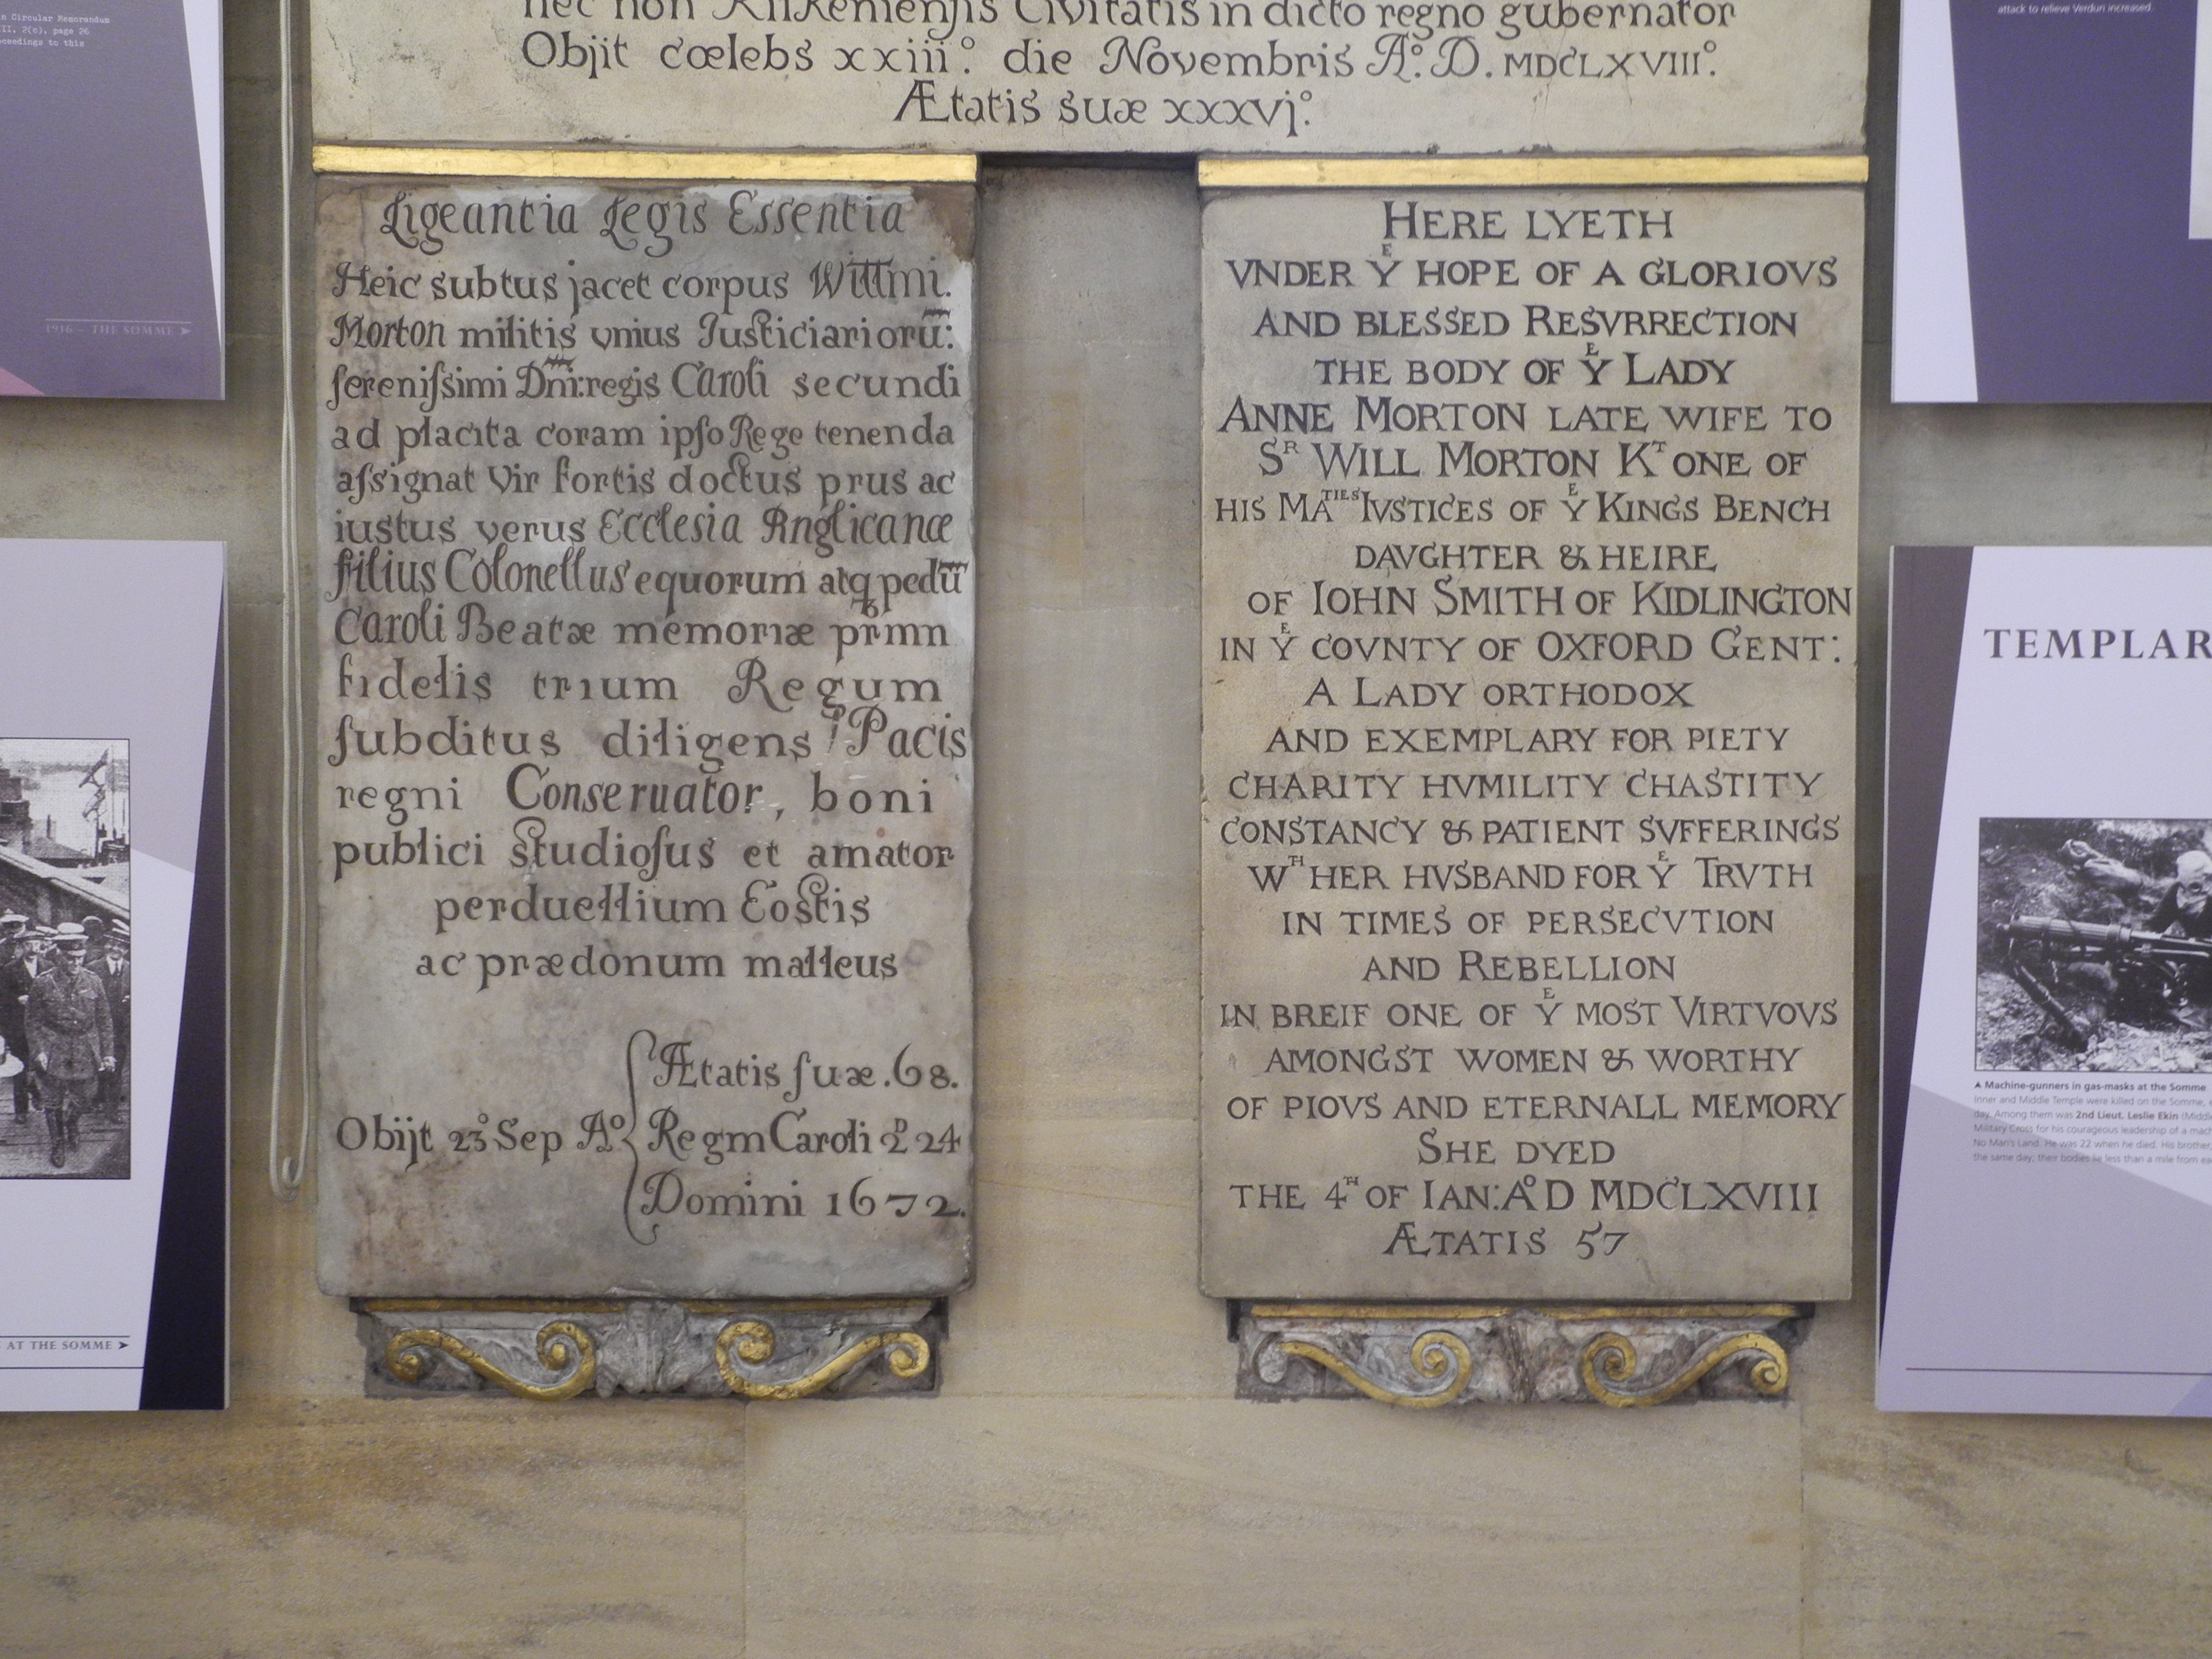 n Circular Memorandum
II, 2(c), page 26
ceedings to this
1916 – THE SOMME ➤
AT THE SOMME ➤
nec non Kilkeniensis Civitatis in dicto regno gubernator
Objit cœlebs xxiii.° die Novembris A.° D. MDCLXVIII.°
Ætatis suæ xxxvj.°
Ligeantia Legis Essentia
Heic subtus jacet corpus Willmi.
Morton militis vnius Iusticiariorū:
ſereniſsimi Dni: regis Caroli secundi
ad placita coram ipſo Rege tenenda
aſsignat Vir fortis doctus prus ac
iustus verus Ecclesia Anglicanæ
filius Colonellus equorum atq pedū
Caroli Beatæ memoriæ prımn
fidelis trium Regum
ſubditus diligens Pacis
regni Conseruator, boni
publici studioſus et amator
perduellium Eostis
ac prædonum malleus
Ætatis ſuæ . 68.
Obijt 23° Sep A° Regm Caroli 2D 24
Domini 1672.
HERE LYETH
VNDER YE HOPE OF A GLORIOVS
AND BLESSED RESVRRECTION
THE BODY OF YE LADY
ANNE MORTON LATE WIFE TO
SR WILL MORTON KT ONE OF
HIS MATIES IVSTICES OF YE KINGS BENCH
DAVGHTER & HEIRE
OF IOHN SMITH OF KIDLINGTON
IN YE COVNTY OF OXFORD GENT:
A LADY ORTHODOX
AND EXEMPLARY FOR PIETY
CHARITY HVMILITY CHASTITY
CONSTANCY & PATIENT SVFFERINGS
WTH HER HVSBAND FOR YE TRVTH
IN TIMES OF PERSECVTION
AND REBELLION
IN BREIF ONE OF YE MOST VIRTVOVS
AMONGST WOMEN & WORTHY
OF PIOVS AND ETERNALL MEMORY
SHE DYED
THE 4TH OF IAN: A° D MDCLXVIII
ÆTATIS 57
attack to relieve Verdun increased.
TEMPLAR
Machine-gunners in gas-masks at the Somme
Inner and Middle Temple were killed on the Somme,
day. Among them was 2nd Lieut. Leslie Ekin (Midd
Military Cross for his courageous leadership of a mac
No Man's Land. He was 22 when he died. His brother,
the same day; their bodies lie less than a mile from ea